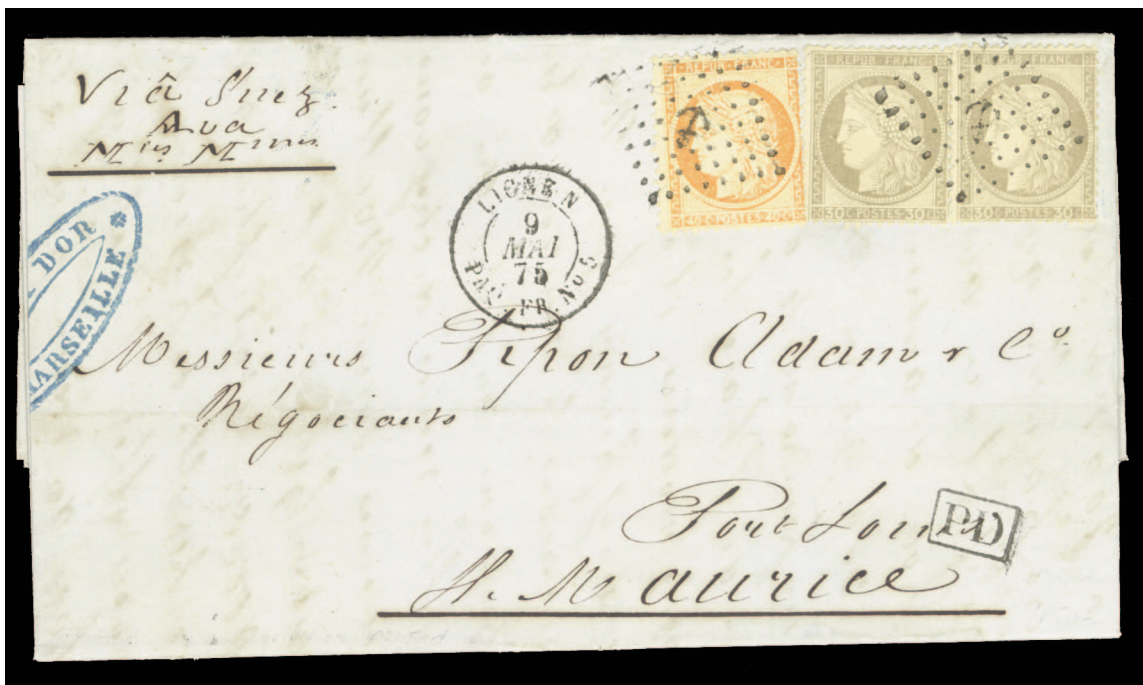 Viâ Suez.
Ava
M^ies M^mes
REPUB · FRANC ·
40 · C · POSTES · 40 · C
REPUB · FRANC ·
30 · C · POSTES · 30 · C
REPUB · FRANC ·
30 · C · POSTES · 30 · C
LIGNE N
9
MAI
75
PAQ. FR. No 5
DOR
MARSEILLE *
Messieurs Pipon Adam & C^o.
Négociants
Port Louis
PD
I. Maurice